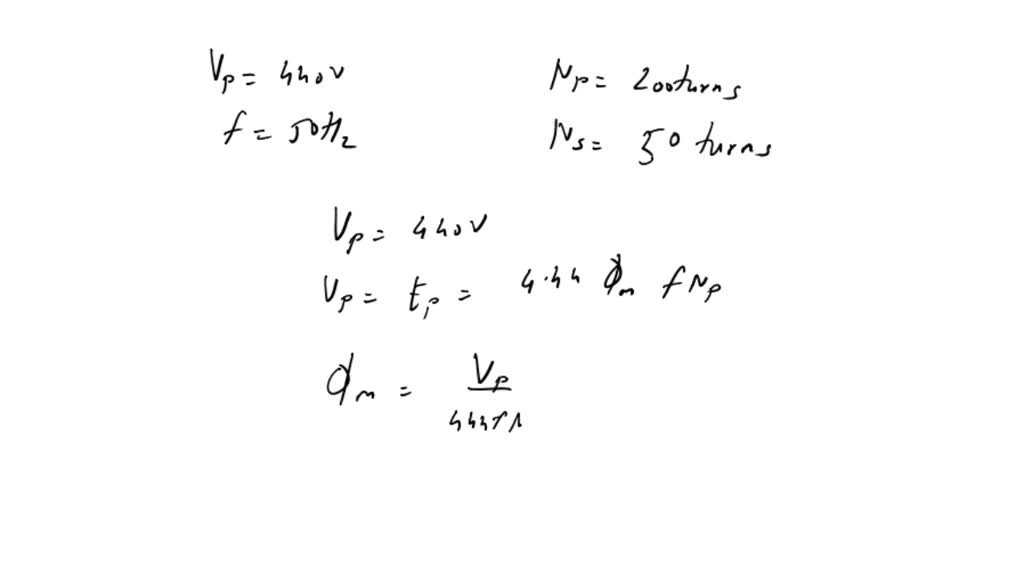 Vp = 440V
Np = 200turns
f = 50Hz
Ns = 50 turns
Vp = 440V
Vp = Ep = 4.44 ϕm f Np
ϕm = Vp